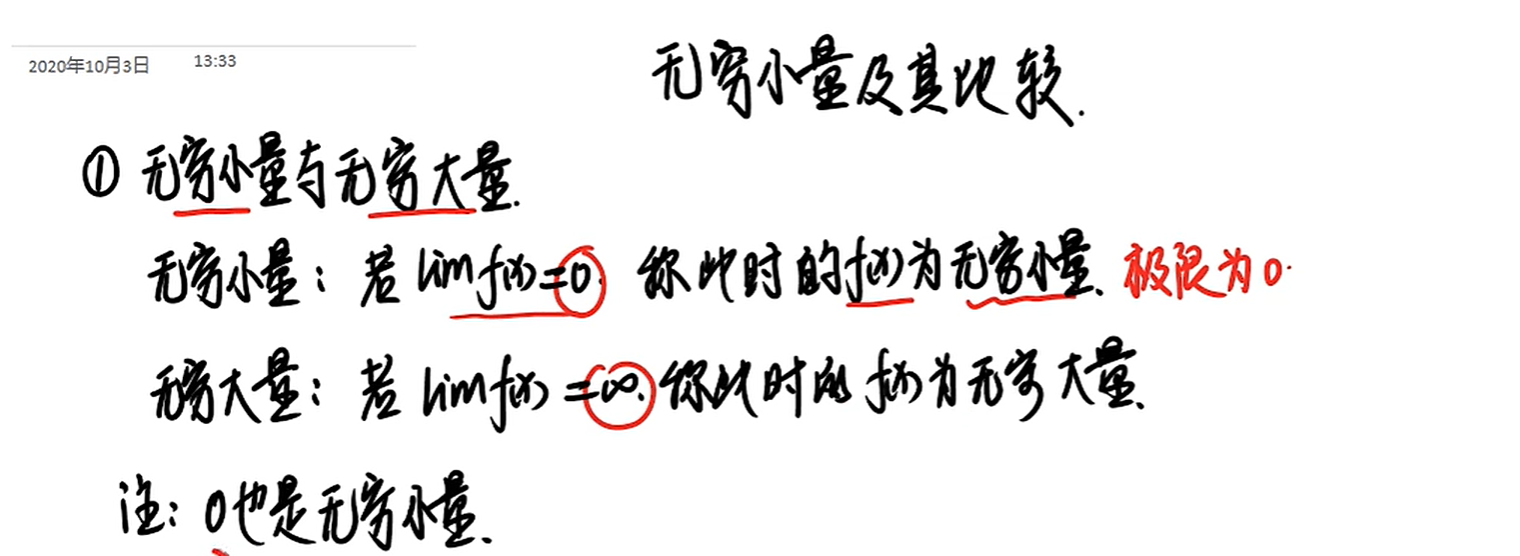 2020年10月3日 13:33
无穷小量及其比较.
① 无穷小量与无穷大量.
无穷小量: 若 lim f(x)=0. 称此时的f(x)为无穷小量. 极限为0.
无穷大量: 若 lim f(x)=∞. 称此时的f(x)为无穷大量.
注: 0也是无穷小量.